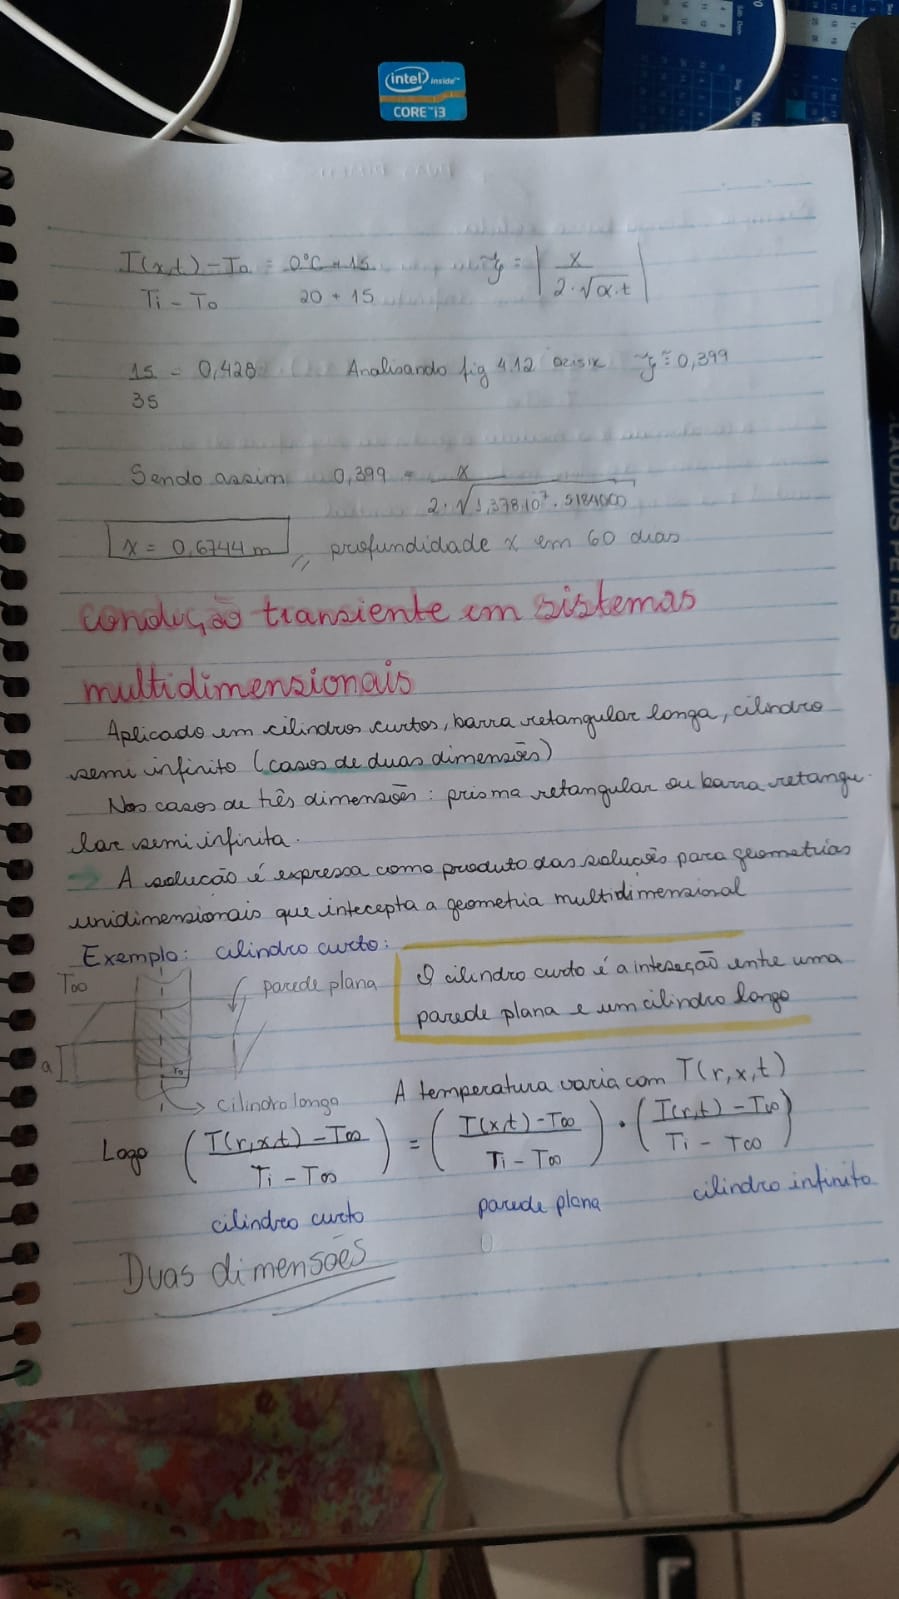 intel inside™
CORE™i3
T(x,t) - To = 0°C + 15    ξ = | x / 2·√α.t |
Ti - To    20 + 15
15 = 0,428    Analisando fig 4.12    ξ ≅ 0,399
35
Sendo assim    0,399 = x
2·√1,378.10⁷ . 5184000
x = 0,6744 m // profundidade x em 60 dias
condução transiente em sistemas
multidimensionais
Aplicado em cilindros curtos, barra retangular longa, cilindro
semi infinito (casos de duas dimensões)
Nos casos de três dimensões: prisma retangular ou barra retangu-
lar semi infinita.
→ A solucão é expressa como produto das soluções para geometrias
unidimensionais que intecepta a geometria multidimensional
Exemplo: cilindro curto:
T∞
parede plana
O cilindro curto é a interseção entre uma
parede plana e um cilindro longo
a
ro
→ cilindro longo
A temperatura varia com T(r,x,t)
Logo ( T(r,x,t) - T∞ / Ti - T∞ ) = ( T(x,t) - T∞ / Ti - T∞ ) · ( T(r,t) - T∞ / Ti - T∞ )
cilindro curto    parede plana    cilindro infinito
Duas dimensões
CLAUDIOS PETERS